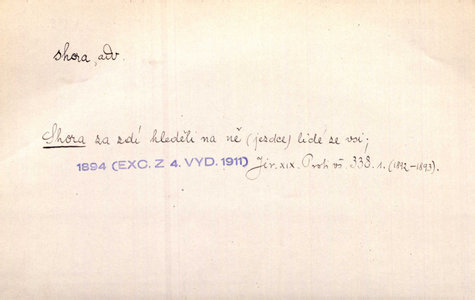 shora, adv.
Shora za zdí hleděli na ně (jezdce) lidé ze vsi;
1894 (EXC. Z 4. VYD. 1911) Jir. XIX. Proti vš. 338. 1. (1892–1893).